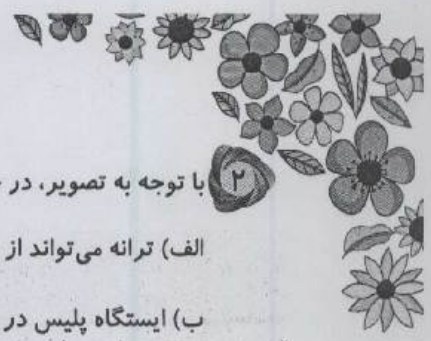 ۲ با توجه به تصویر، در
الف) ترانه می‌تواند از
ب) ایستگاه پلیس در